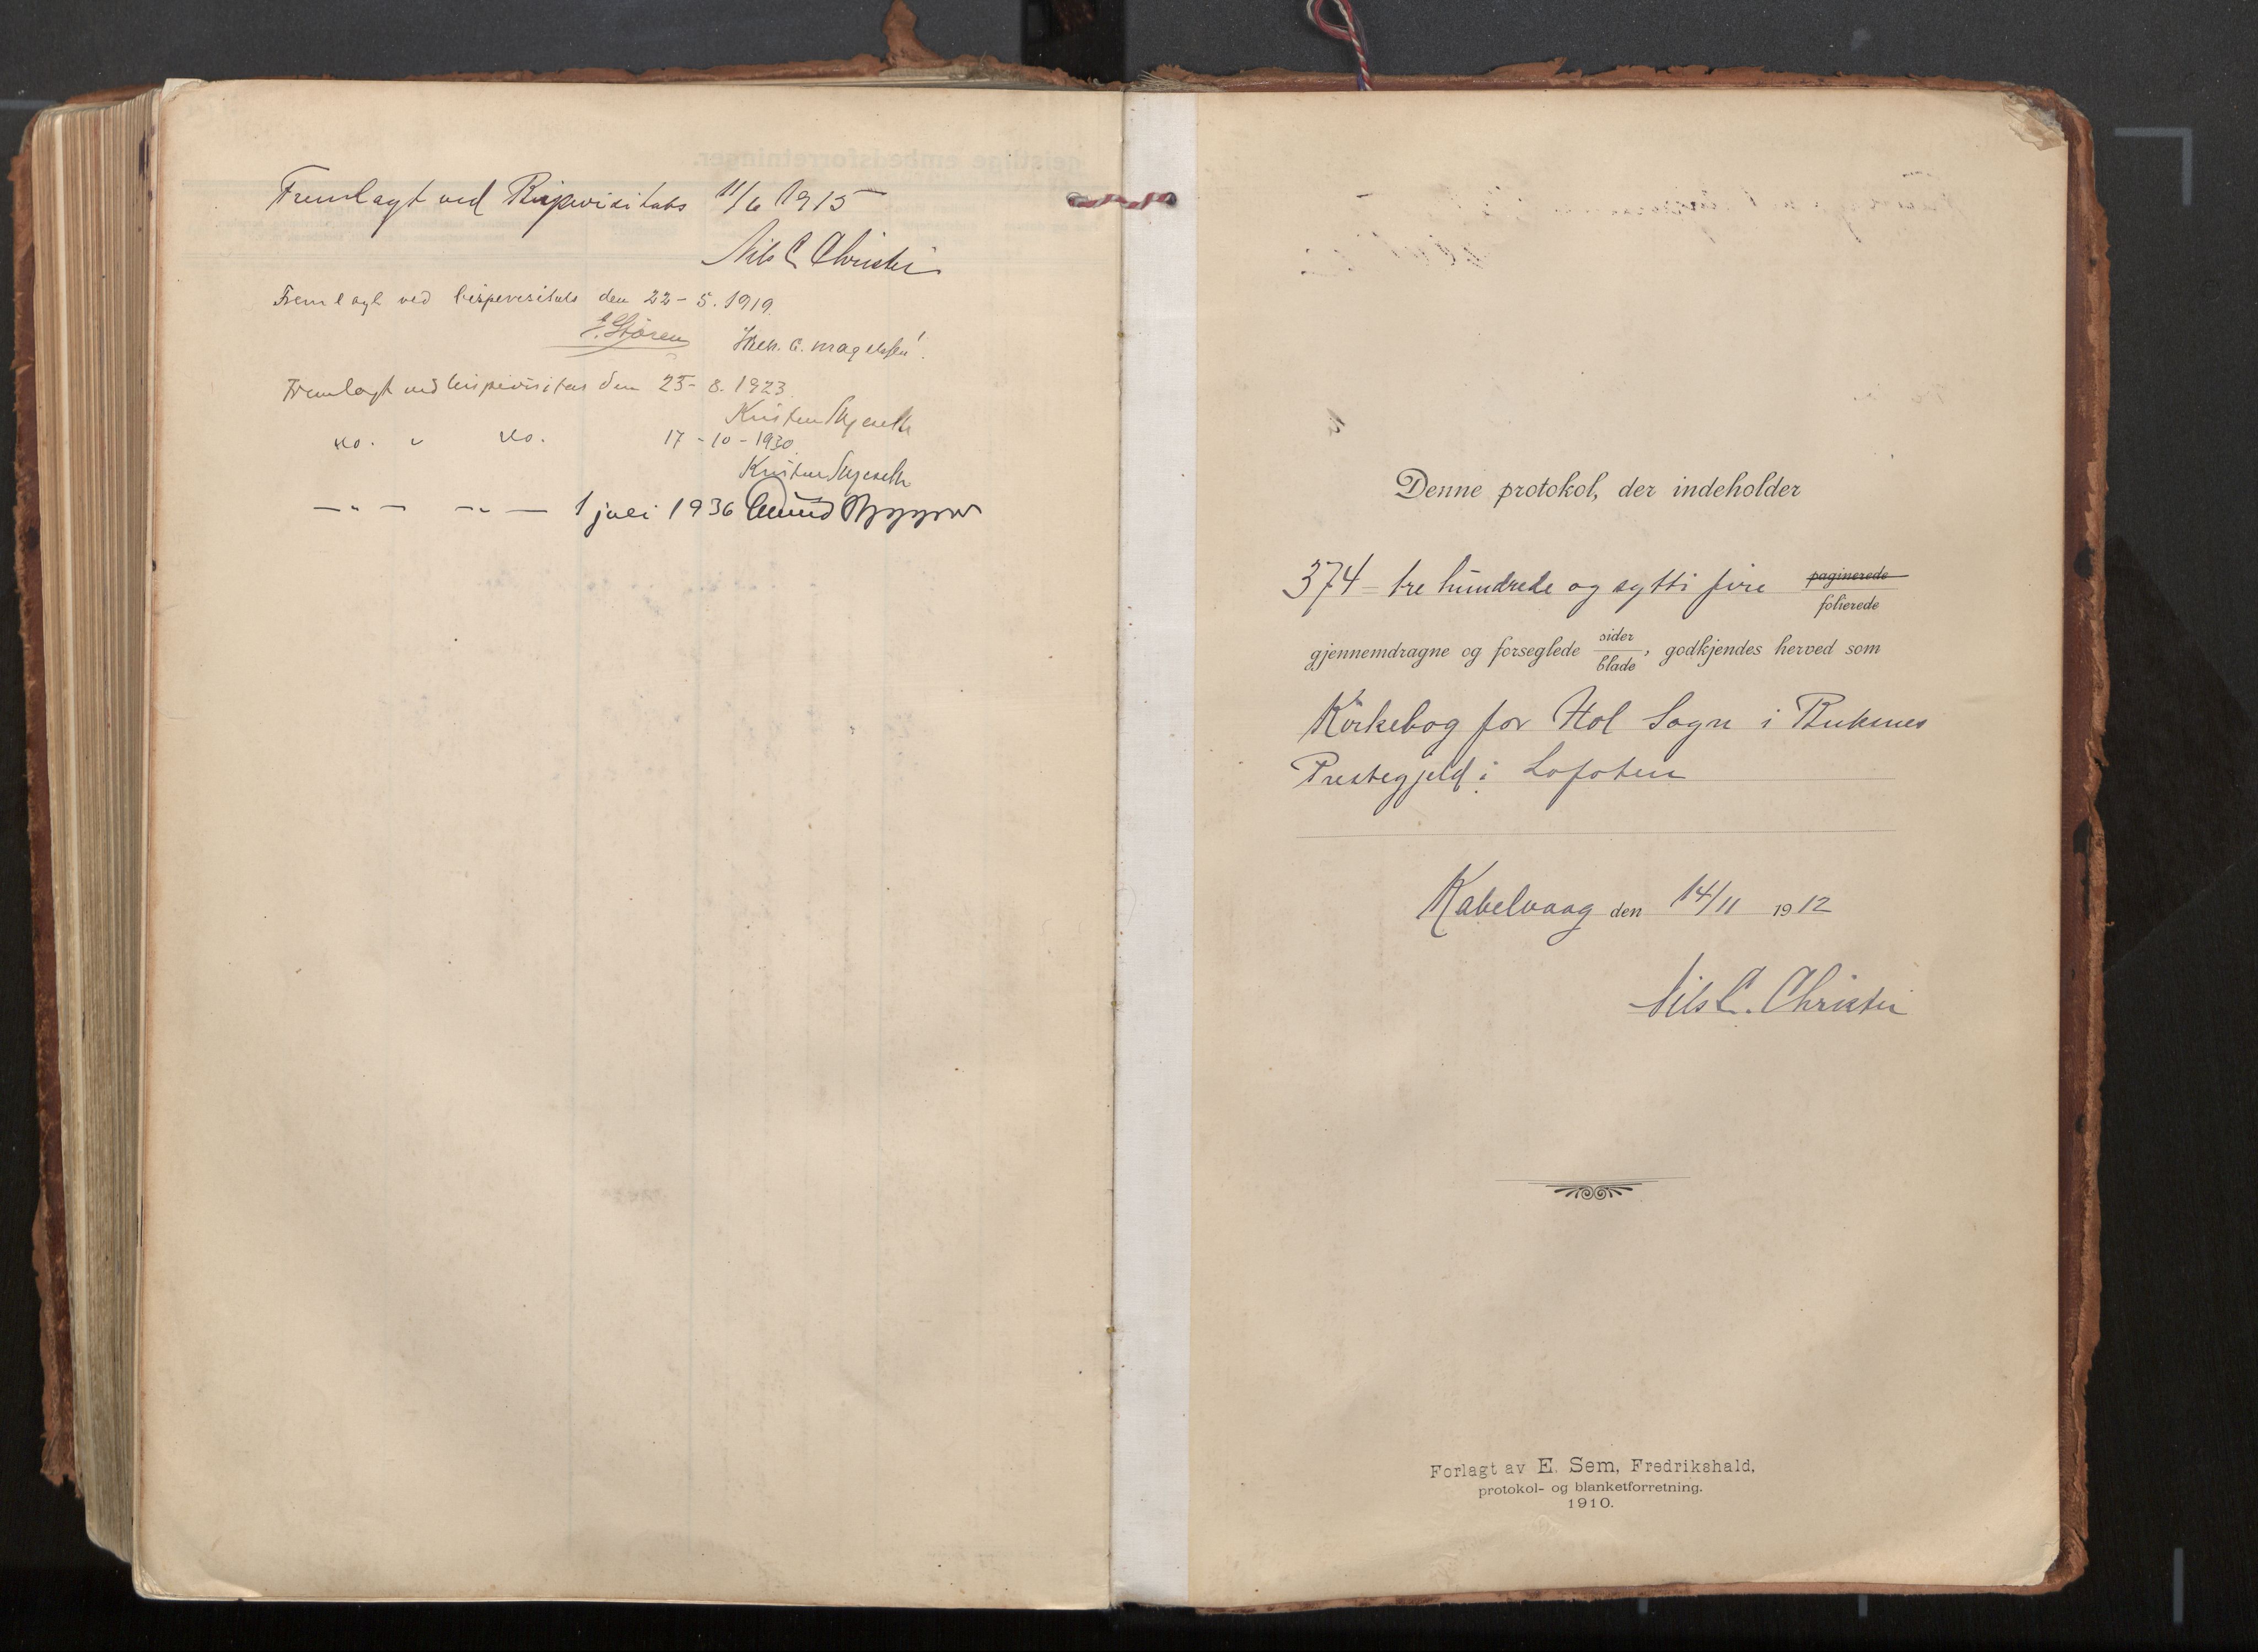 Fremlagt ved Bispevisitats 11/6 1915
Nils C Christie
Fremlagt ved bispevisitats den 22-5. 1919.
E. Støren
Kristen Skjeseth
Fremlagt ved bispevisitas den 25-8. 1923.
do. " do. 17-10-1930.
Kristen Skjeseth
— " — — " — 1 juli 1936
Denne protokol, der indeholder
374 = tre hundrede og sytti fire paginerede
folierede
gjennemdragne og forseglede sider
blade, godkjendes herved som
Kirkebog for Hol Sogn i Buksnes
Prestegjeld i Lofoten
Kabelvaag den 14/11 1912
Nils C. Christie
Forlagt av E. Sem, Fredrikshald,
protokol- og blanketforretning.
1910.